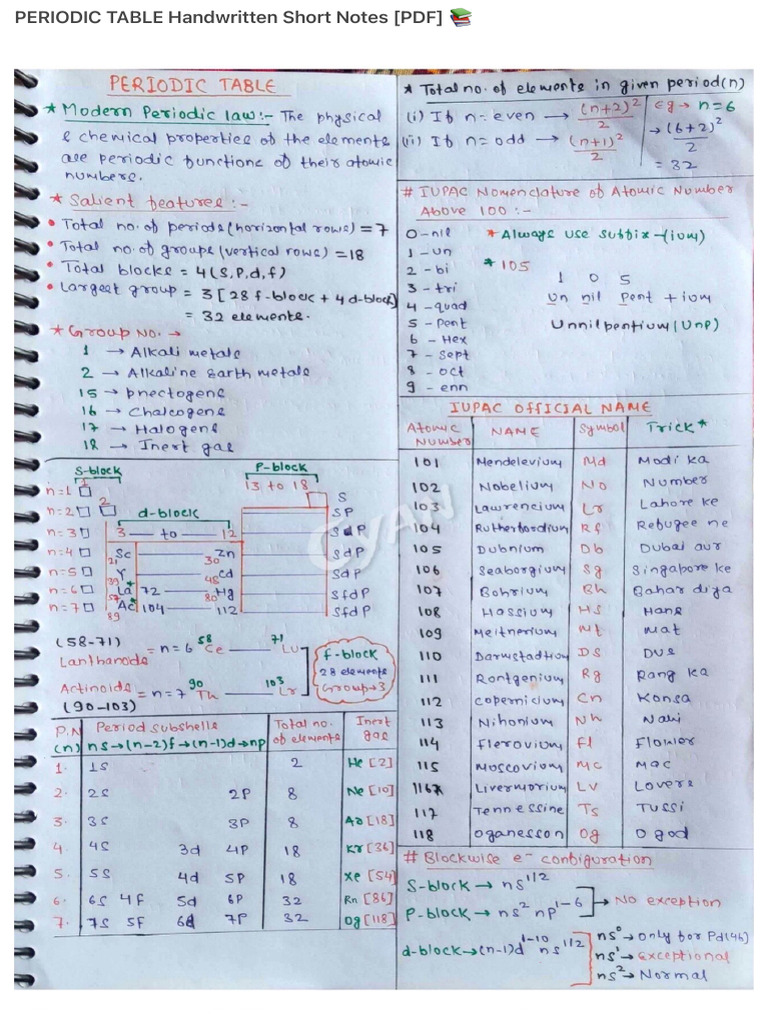 PERIODIC TABLE Handwritten Short Notes [PDF] 📚
PERIODIC TABLE
* Modern Periodic law:- The physical
& chemical properties of the elements
are periodic functions of their atomic
numbers.
* Salient features:-
• Total no. of periods (horizontal rows) = 7
• Total no. of groups (vertical rows) = 18
• Total blocks = 4 (S, P, d, f)
• Largest group = 3 [28 f-block + 4 d-block]
= 32 elements.
* Group No. →
1 → Alkali metals
2 → Alkaline Earth metals
15 → pnectogens
16 → Chalcogens
17 → Halogens
18 → Inert gas
S-block
P-block
1
13 to 18
n=1
S
n=2
2
d-block
SP
n=3
3 — to — 12
SP
n=4
21 Sc — 30 Zn
SdP
n=5
39 Y — 48 Cd
SdP
n=6
57 La* 72 — 80 Hg
SfdP
n=7
89 Ac* 104 — 112
SfdP
CYAN
(58-71)
Lanthanoids = n=6 58 Ce — 71 Lu
Actinoids = n=7 90 Th — 103 Lr
(90-103)
f-block
28 elements
Group→3
P.N (n) Period Subshells ns→(n-2)f→(n-1)d→np Total no. of elements Inert gas
1. 1S 2 He [2]
2. 2S 2P 8 Ne [10]
3. 3S 3P 8 Ar [18]
4. 4S 3d 4P 18 Kr [36]
5. 5S 4d 5P 18 Xe [54]
6. 6S 4F 5d 6P 32 Rn [86]
7. 7S 5F 6d 7P 32 Og [118]
* Total no. of elements in given period(n)
(i) If n = even → (n+2)²/2
(ii) If n = odd → (n+1)²/2
Eg → n=6
→ (6+2)²/2
= 32
# IUPAC Nomenclature of Atomic Number
Above 100 :-
0 - nil * Always use suffix -(ium)
1 - un
2 - bi * 105
3 - tri 1 0 5
4 - quad Un nil Pent + ium
5 - Pent Unnilpentium (Unp)
6 - Hex
7 - Sept
8 - oct
9 - enn
IUPAC OFFICIAL NAME
Atomic Number NAME Symbol Trick*
101 Mendelevium Md Modi ka
102 Nobelium No Number
103 Lawrencium Lr Lahore ke
104 Rutherfordium Rf Refugee ne
105 Dubnium Db Dubai aur
106 Seaborgium Sg Singapore ke
107 Bohrium Bh Bahar diya
108 Hassium HS Hans
109 Meitnerium Mt mat
110 Darmstadtium DS Dus
111 Rontgenium Rg Rang ka
112 Copernicium Cn Konsa
113 Nihonium Nh Nahi
114 Flerovium Fl Flower
115 Moscovium Mc Mac
116 Livermorium Lv Lovers
117 Tennessine Ts Tussi
118 Oganesson Og O god
# Blockwise e⁻ configuration
S-block → ns¹/²
P-block → ns² np¹⁻⁶
→ No exception
d-block → (n-1)d¹⁻¹⁰ ns¹/²
ns⁰ → only for Pd(46)
ns¹ → exceptional
ns² → Normal